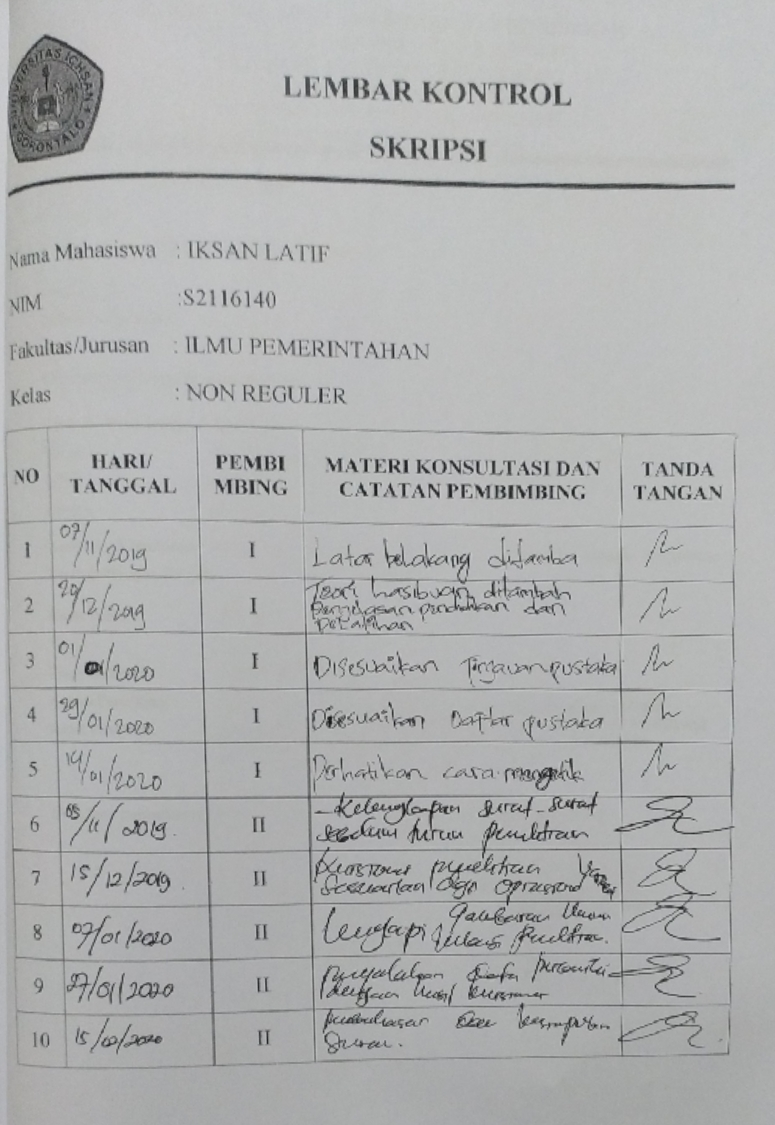 UNIVERSITAS ICHSAN
GORONTALO
LEMBAR KONTROL
SKRIPSI
Nama Mahasiswa : IKSAN LATIF
NIM :S2116140
Fakultas/Jurusan : ILMU PEMERINTAHAN
Kelas : NON REGULER
NO HARI/ TANGGAL PEMBI MBING MATERI KONSULTASI DAN CATATAN PEMBIMBING TANDA TANGAN
1 07/11/2019 I Latar belakang ditamba
2 20/12/2019 I Teori hasibuan ditambah
dan
3 01/01/2020 I Disesuaikan Tinjauan pustaka
4 29/01/2020 I Disesuaikan Daftar pustaka
5 14/01/2020 I Perhatikan cara mengetik
6 05/11/2019. II - Kelengkapan surat-surat
sebelum turun penelitian
7 15/12/2019. II Kuesioner penelitian
Sesuaikan dgn
8 07/01/2020 II Lengkapi gambaran Umum
lokasi penelitian.
9 27/01/2020 II
dengan hasil
10 15/02/2020 II kesimpulan
Saran.